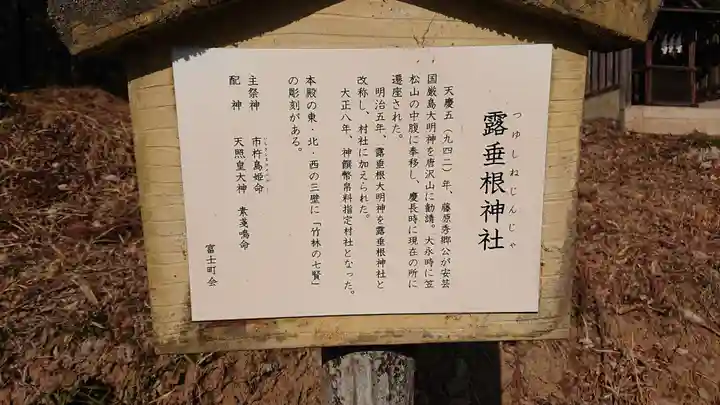 つゆしねじんじゃ
露垂根神社
天慶五(九四二)年、藤原秀郷公が安芸
国厳島大明神を唐沢山に勧請。大永時に笠
松山の中腹に奉移し、慶長時に現在の所に
遷座された。
明治五年、露垂根大明神を露垂根神社と
改称し、村社に加えられた。
大正八年、神饌幣帛料指定村社となった。
本殿の東・北・西の三壁に「竹林の七賢」
の彫刻がある。
主祭神 市杵島姫命
配神 天照皇大神 素戔鳴命
富士町会